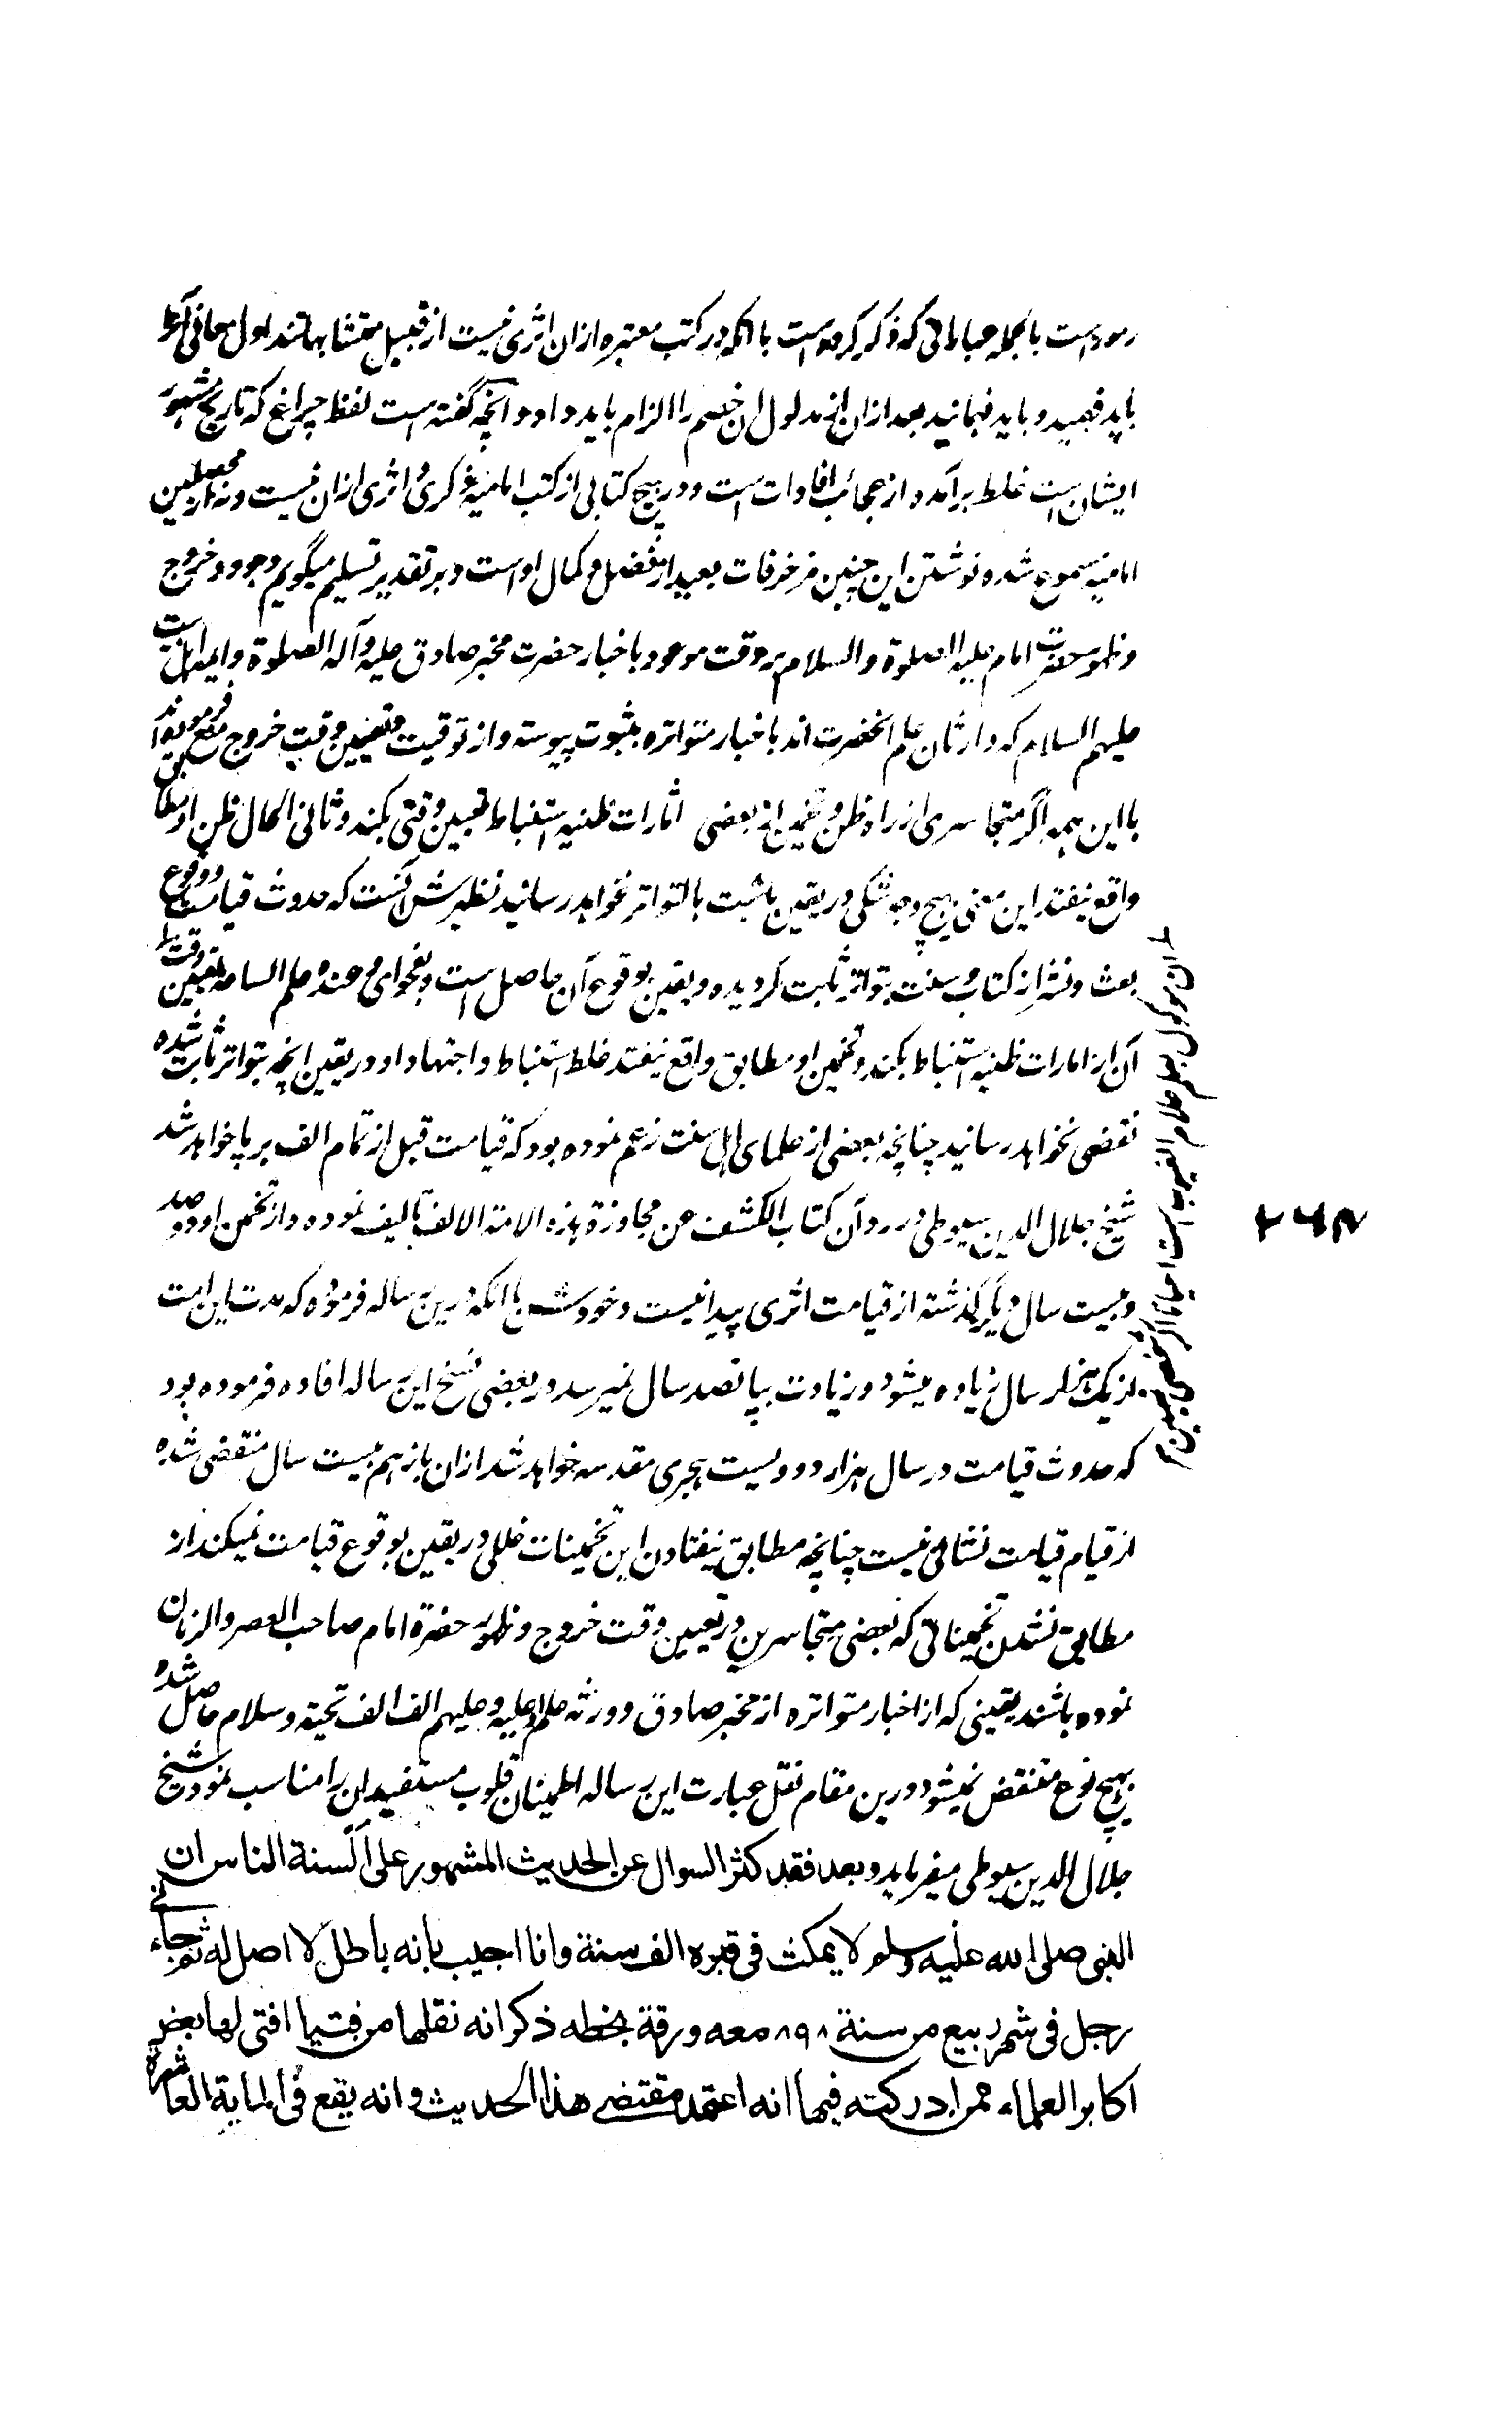 رموده است بالجمله عباراتی که ذکر کرده است با آنکه در کتب معتبره ازان اثری نیست از قبیل متشابهات اند اول معانی آنرا
باید فهمید و باید فهمانید بعد ازان از مدلول ان خصم را الزام باید داد و انچه گفته است لفظ چراغ که تاریخ مشهور
ایشان است غلط برآمد از عجائب افادات است و در هیچ کتابی از کتب امامیه ذکری و اثری ازان نیست و نه از محصلین
امامیه مسموع شده نوشتن این چنین مزخرفات بعید از فضل و کمال اوست و بر تقدیر تسلیم میگویم وجود و خروج
و ظهور حضرت امام علیه الصلوة والسلام در وقت موعود باخبار حضرت مخبر صادق علیه وآله الصلوة و اهلبیت
علیهم السلام که وارثان علم انحضرت اند باخبار متواتره بثبوت پیوسته و از توقیت و تعیین وقت خروج منع فرموده اند
با این همه اگر متجاسری از راه ظن و تخمین از بعضی امارات ظنیه استنباط تعیین وقتی بکند و ثانی الحال ظن او مطابق
واقع نیفتد این معنی بهیچ وجه شکی در یقین ما ثبت بالتواتر نخواهد رسانید نظیرش آنست که حدوث قیامت و وقوع
بعث و نشر از کتاب و سنت بتواتر ثابت گردیده و یقین بوقوع آن حاصل است و بفحوای و عنده علم الساعة تعیین وقت
آن از امارات ظنیه استنباط بکند و تخمین او مطابق واقع نیفتد غلط استنباط و اجتهاد او در یقین انچه بتواتر ثابت شده
نقضی نخواهد رسانید چنانچه بعضی از علمای اهل سنت زعم نموده بود که قیامت قبل از تمام الف برپا خواهد شد
شیخ جلال الدین سیوطی در رد آن کتاب الکشف عن مجاوزة هذه الامة الالف تالیف نموده و از تخمین او دو صد
و بیست سال دیگر گذشته از قیامت اثری پیدا نیست و خودش با آنکه درین رساله فرموده که مدت این امت
از یک هزار سال زیاده میشود و زیادت بپانصد سال نمیرسد و در بعضی نسخ این رساله افاده فرموده بود
که حدوث قیامت در سال هزار و دویست هجری مقدسه خواهد شد ازان باز هم بیست سال منقضی شده
از قیام قیامت نشانی نیست چنانچه مطابق نیفتادن این تخمینات خللی در یقین بوقوع قیامت نمیکند از
مطابق نشدن تخمیناتی که بعضی متجاسرین در تعیین وقت خروج و ظهور حضرة امام صاحب العصر والزمان
نموده باشند یقینی که از اخبار متواتره از مخبر صادق و ورثه علم او علیه وعلیهم الف الف تحیة وسلام حاصل شده
بهیچ نوع منتقض نمیشود و درین مقام نقل عبارت این رساله اطمینان قلوب مستفیدان را مناسب نمود شیخ
جلال الدین سیوطی میفرماید وبعد فقد کثر السوال عن الحدیث المشهور علی السنة الناس ان
النبی صلی الله علیه وسلم لا یمکث فی قبره الف سنة وانا اجیب بانه باطل لا اصل له ثم جاءنی
رجل فی شهر ربیع من سنة ۸۹۸ معه ورقة بخطه ذکر انه نقلها من فتیا افتی لها بعض
اکابر العلماء ممن ادرکته فیها انه اعتمد مقتضی هذا الحدیث وانه یقع فی المایة العاشرة
۲۶۸